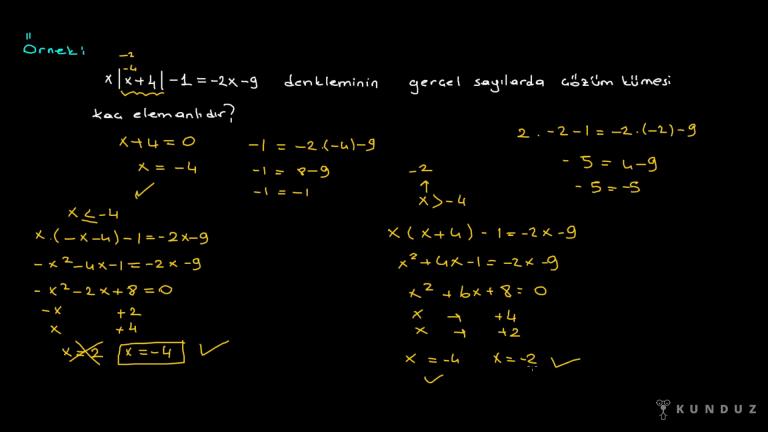 Örnek:
-2
-4
x|x+4|-1=-2x-9 denkleminin gerçel sayılarda çözüm kümesi
kaç elemanlıdır?
x+4=0
x=-4
✓
-1=-2·(-4)-9
-1=8-9
-1=-1
x≤-4
x·(-x-4)-1=-2x-9
-x²-4x-1=-2x-9
-x²-2x+8=0
-x +2
x +4
x=2 x=-4 ✓
-2
↑
x>-4
x(x+4)-1=-2x-9
x²+4x-1=-2x-9
x²+6x+8=0
x → +4
x → +2
x=-4 x=-2 ✓
✓
2·-2-1=-2·(-2)-9
-5=4-9
-5=-5
KUNDUZ